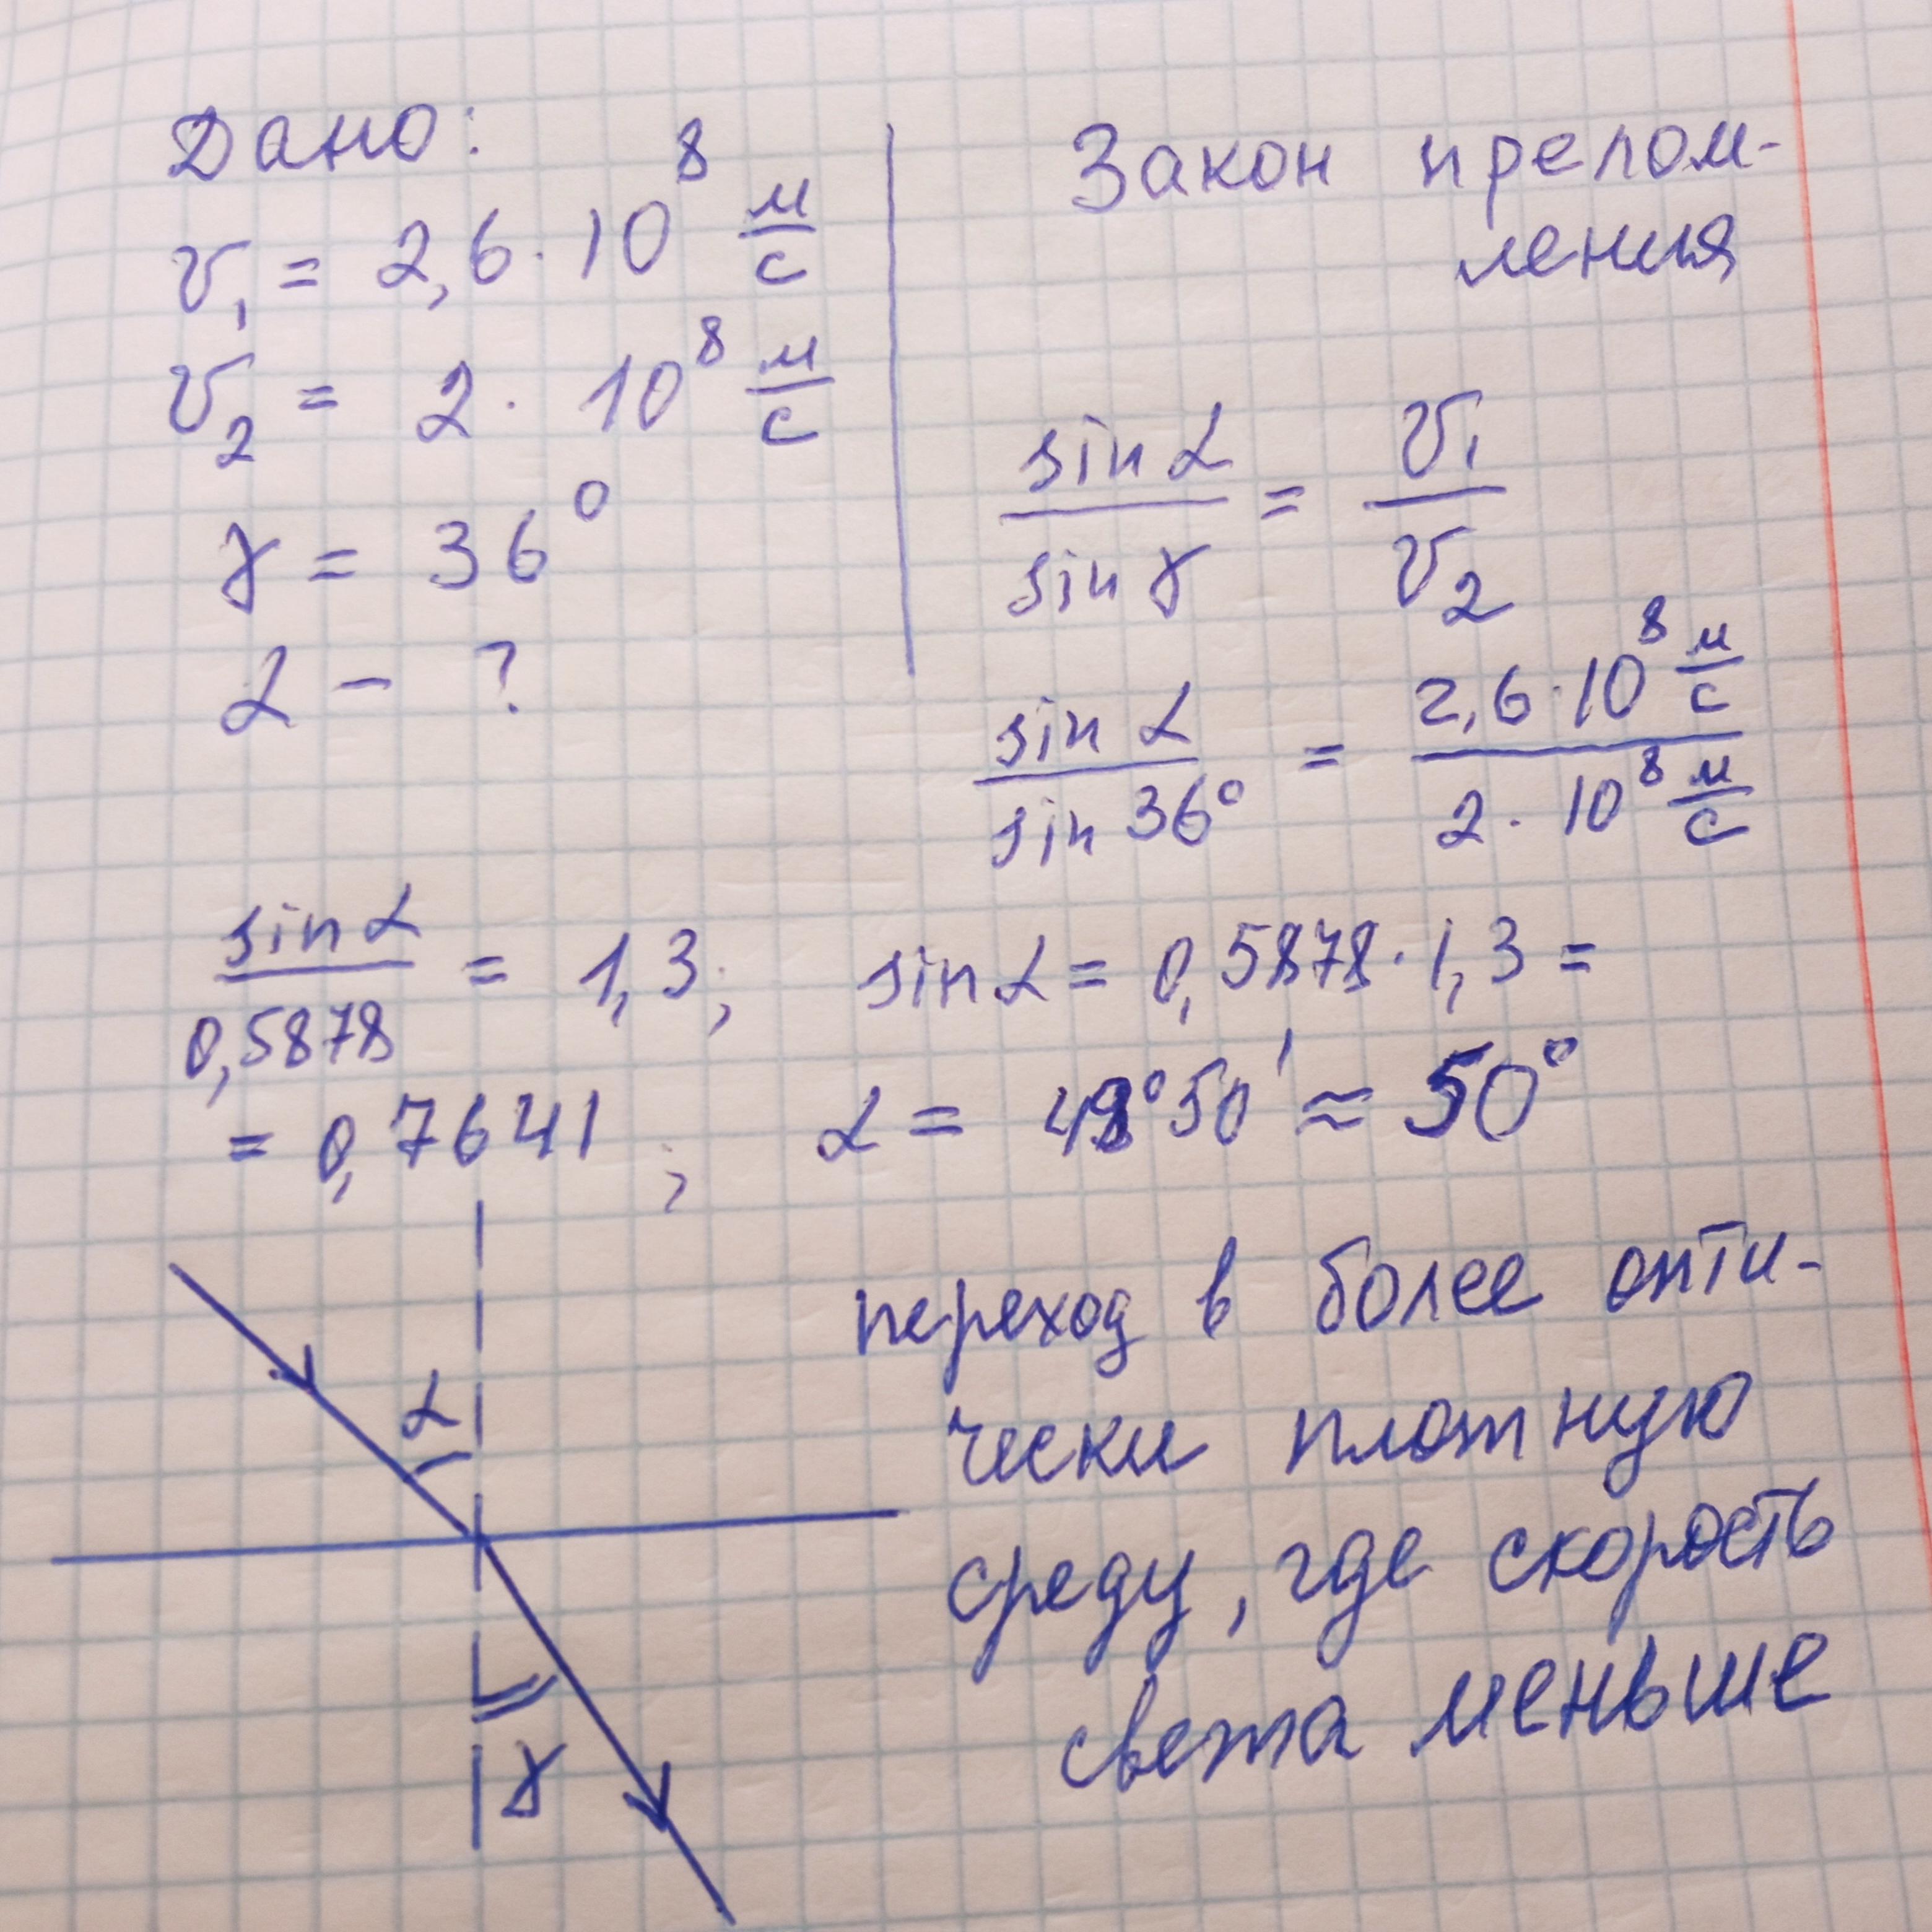 Дано:
v₁ = 2,6 · 10⁸ м/с
v₂ = 2 · 10⁸ м/с
γ = 36°
α - ?
Закон прелом-
ления
sin α / sin γ = v₁ / v₂
sin α / sin 36° = 2,6 · 10⁸ м/с / 2 · 10⁸ м/с
sin α / 0,5878 = 1,3; sin α = 0,5878 · 1,3 =
= 0,7641 ; α = 49°50' ≈ 50°
α
γ
переход в более опти-
чески плотную
среду, где скорость
света меньше